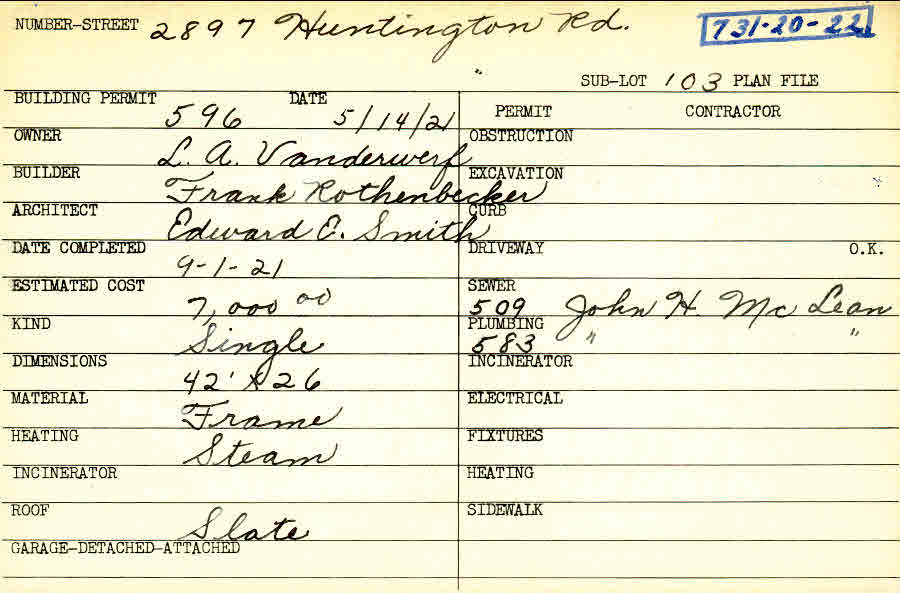 NUMBER-STREET 2897 Huntington Rd. 731-20-22
SUB-LOT 103 PLAN FILE
BUILDING PERMIT 596 DATE 5/14/21 PERMIT CONTRACTOR
OWNER L. A. Vanderwerf OBSTRUCTION
BUILDER Frank Rothenbecker EXCAVATION
ARCHITECT Edward E. Smith CURB
DATE COMPLETED 9-1-21 DRIVEWAY O.K.
ESTIMATED COST 7,000 00 SEWER 509 John H. McLean
KIND Single PLUMBING 583 " "
DIMENSIONS 42' x 26 INCINERATOR
MATERIAL Frame ELECTRICAL
HEATING Steam FIXTURES
INCINERATOR HEATING
ROOF Slate SIDEWALK
GARAGE-DETACHED-ATTACHED